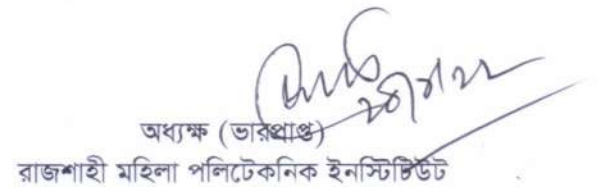 অধ্যক্ষ (ভারপ্রাপ্ত)
রাজশাহী মহিলা পলিটেকনিক ইনস্টিটিউট